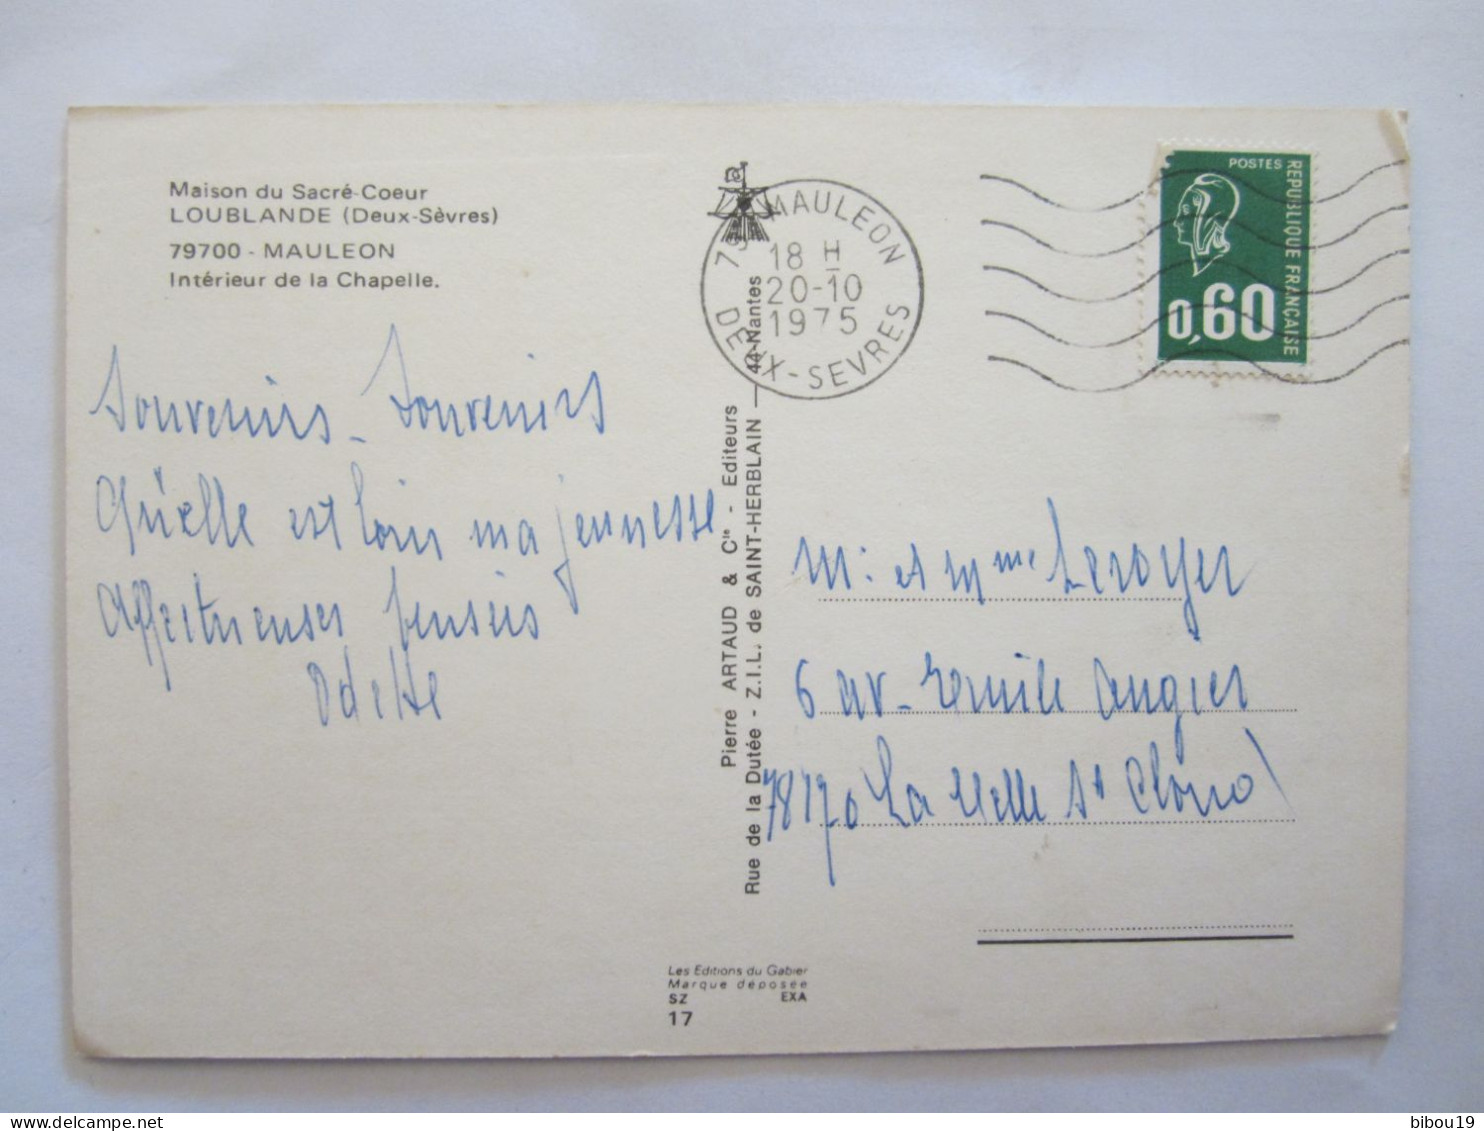 Maison du Sacré-Coeur
LOUBLANDE (Deux-Sèvres)
79700 - MAULEON
Intérieur de la Chapelle.
Souvenirs - Souvenirs
Qu'elle est loin ma jeunesse
Affectueuses pensées
Odette
Pierre ARTAUD & Cie - Editeurs
Rue de la Dutée - Z.I.L. de SAINT-HERBLAIN - 44-Nantes
Les Editions du Gabier
Marque déposée
SZ EXA
17
79 MAULEON
18 H
20-10
1975
DEUX-SEVRES
POSTES
REPUBLIQUE FRANÇAISE
0,60
M. et Mme Leroyer
6 av. Emile Augier
78170 La Celle St Cloud
bibou19